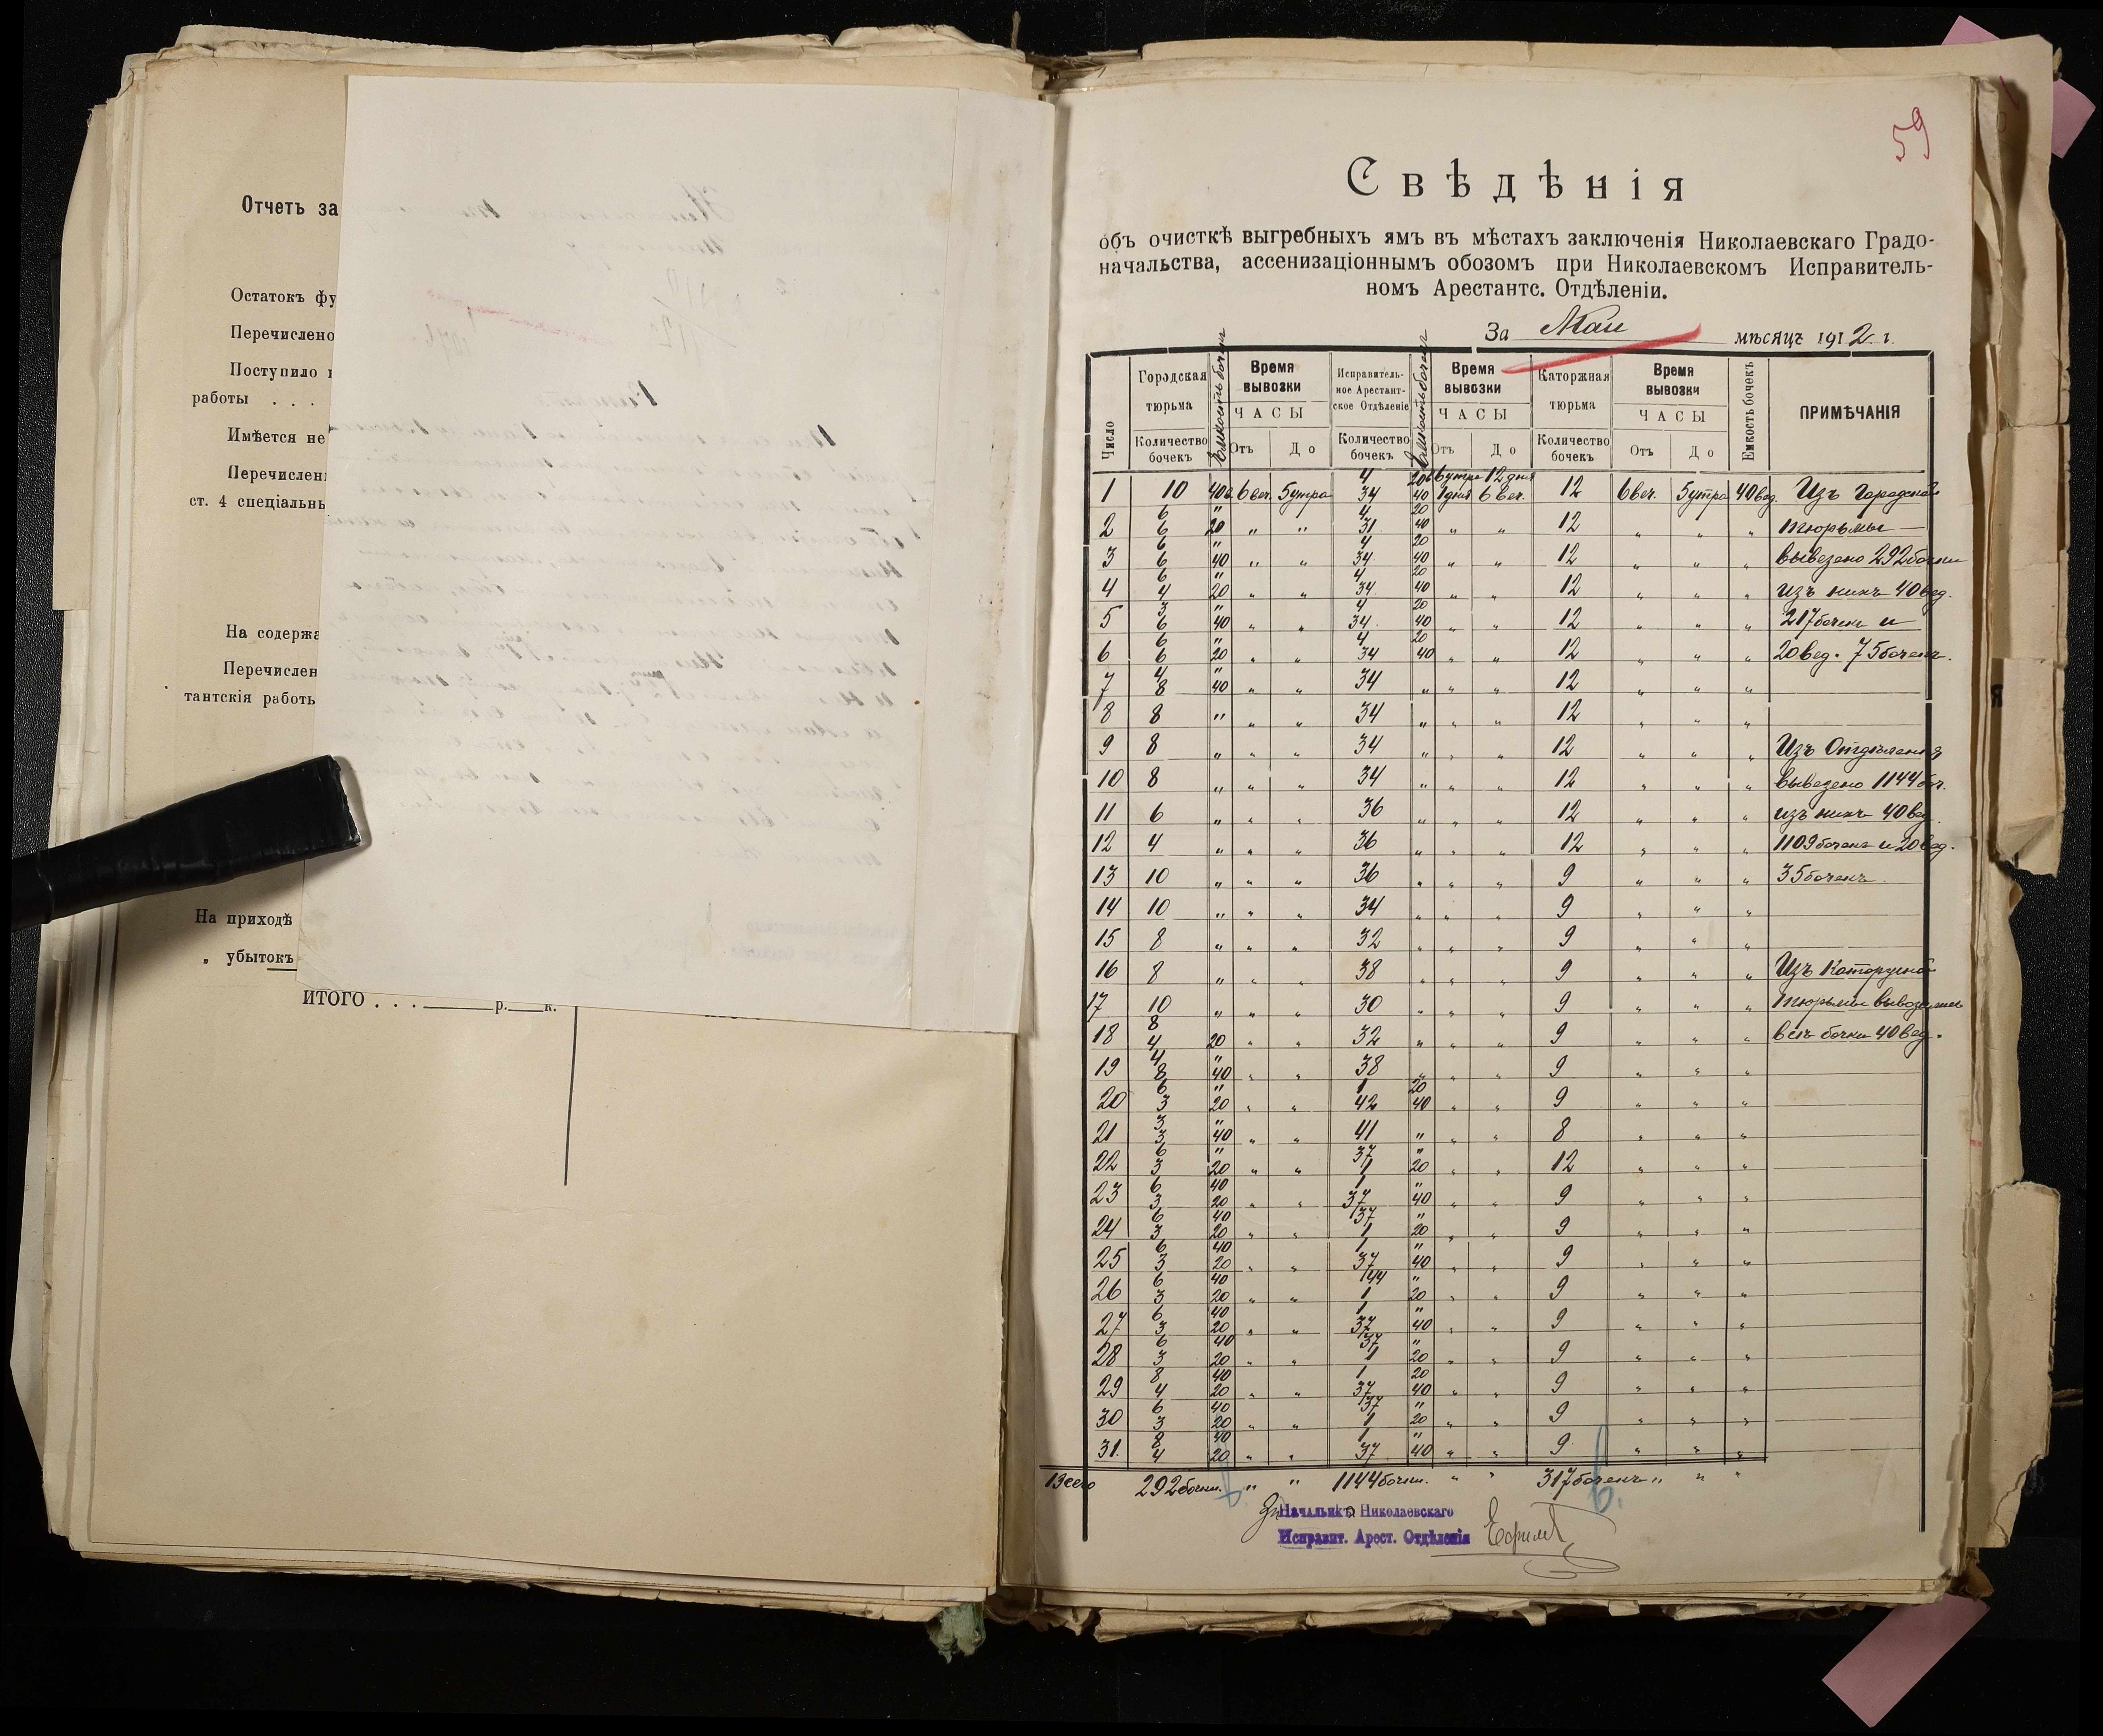 Отчетъ за
Остатокъ фу
Перечислено
Поступило
работы . . .
Имѣется не
Перечислен
ст. 4 спеціальны
На содержа
Перечислен
тантскія работь
На приходѣ
„ убытокъ
ИТОГО . . . р. к.
59
Свѣдѣнія
объ очисткѣ выгребныхъ ямъ въ мѣстахъ заключенія Николаевскаго Градо-
начальства, ассенизаціоннымъ обозомъ при Николаевскомъ Исправитель-
номъ Арестантс. Отдѣленіи.
За Май мѣсяцъ 1912 г.
Число Городская тюрьма Емкость бочекъ Время вывозки Исправитель-ное Арестант-ское Отдѣленіе Емкость бочекъ Время вывозки Каторжная тюрьма Время вывозки Емкость бочекъ ПРИМѢЧАНІЯ
ЧАСЫ ЧАСЫ ЧАСЫ
Количество бочекъ Отъ До Количество бочекъ Отъ До Количество бочекъ Отъ До
4 20в 6 утра 12 дня
1 10 40в 6 веч. 5 утра 34 40 1 дня 6 веч. 12 6 веч. 5 утра 40 вед. Изъ Городской
6 " 4 20
2 6 20 " " 31 40 " " 12 " " " тюрьмы —
6 " 4 20
3 6 40 " " 34 40 " " 12 " " " вывезено 292 бочки
6 " 4 20
4 4 20 " " 34 40 " " 12 " " " изъ нихъ 40 вед.
3 " 4 20
5 6 40 " " 34 40 " " 12 " " " 217 бочекъ и
6 " 4 20
6 6 20 " " 34 40 " " 12 " " " 20 вед. 75 бочекъ.
4 "
7 8 40 " " 34 " " " 12 " " "
8 8 " " " 34 " " " 12 " " "
9 8 " " " 34 " " " 12 " " " Изъ Отдѣленія
10 8 " " " 34 " " " 12 " " " вывезено 1144 боч.
11 6 " " " 36 " " " 12 " " " изъ нихъ 40 вед.
12 4 " " " 36 " " " 12 " " " 1109 бочекъ и 20 вед.
13 10 " " " 36 " " " 9 " " " 35 бочекъ.
14 10 " " " 34 " " " 9 " " "
15 8 " " " 32 " " " 9 " " "
16 8 " " " 38 " " " 9 " " " Изъ Каторжной
17 10 " " " 30 " " " 9 " " " тюрьмы вывозились
8
18 4 20 " " 32 " " " 9 " " " всѣ бочки 40 вед.
4 "
19 8 40 " " 38 " " " 9 " " "
6 " 1 20
20 3 20 " " 42 40 " " 9 " " "
3 "
21 3 40 " " 41 " " " 8 " " "
6 " 37 "
22 3 20 " " 1 20 " " 12 " " "
6 40 1 "
23 3 20 " " 37 40 " " 9 " " "
6 40 37 "
24 3 20 " " 1 20 " " 9 " " "
6 40 1 "
25 3 20 " " 37 40 " " 9 " " "
6 40 44 "
26 3 20 " " 1 20 " " 9 " " "
6 40 1 "
27 3 20 " " 37 40 " " 9 " " "
6 40 37 "
28 3 20 " " 1 20 " " 9 " " "
8 40 1 20
29 4 20 " " 37 40 " " 9 " " "
6 40 37 "
30 3 20 " " 1 20 " " 9 " " "
8 40 1 "
31. 4 20 " " 37 40 " " 9 " " "
Всего 292 бочки. " " 1144 бочки. " " 317 бочекъ " " "
За Начальника Николаевскаго
Исправит. Арест. Отдѣленія